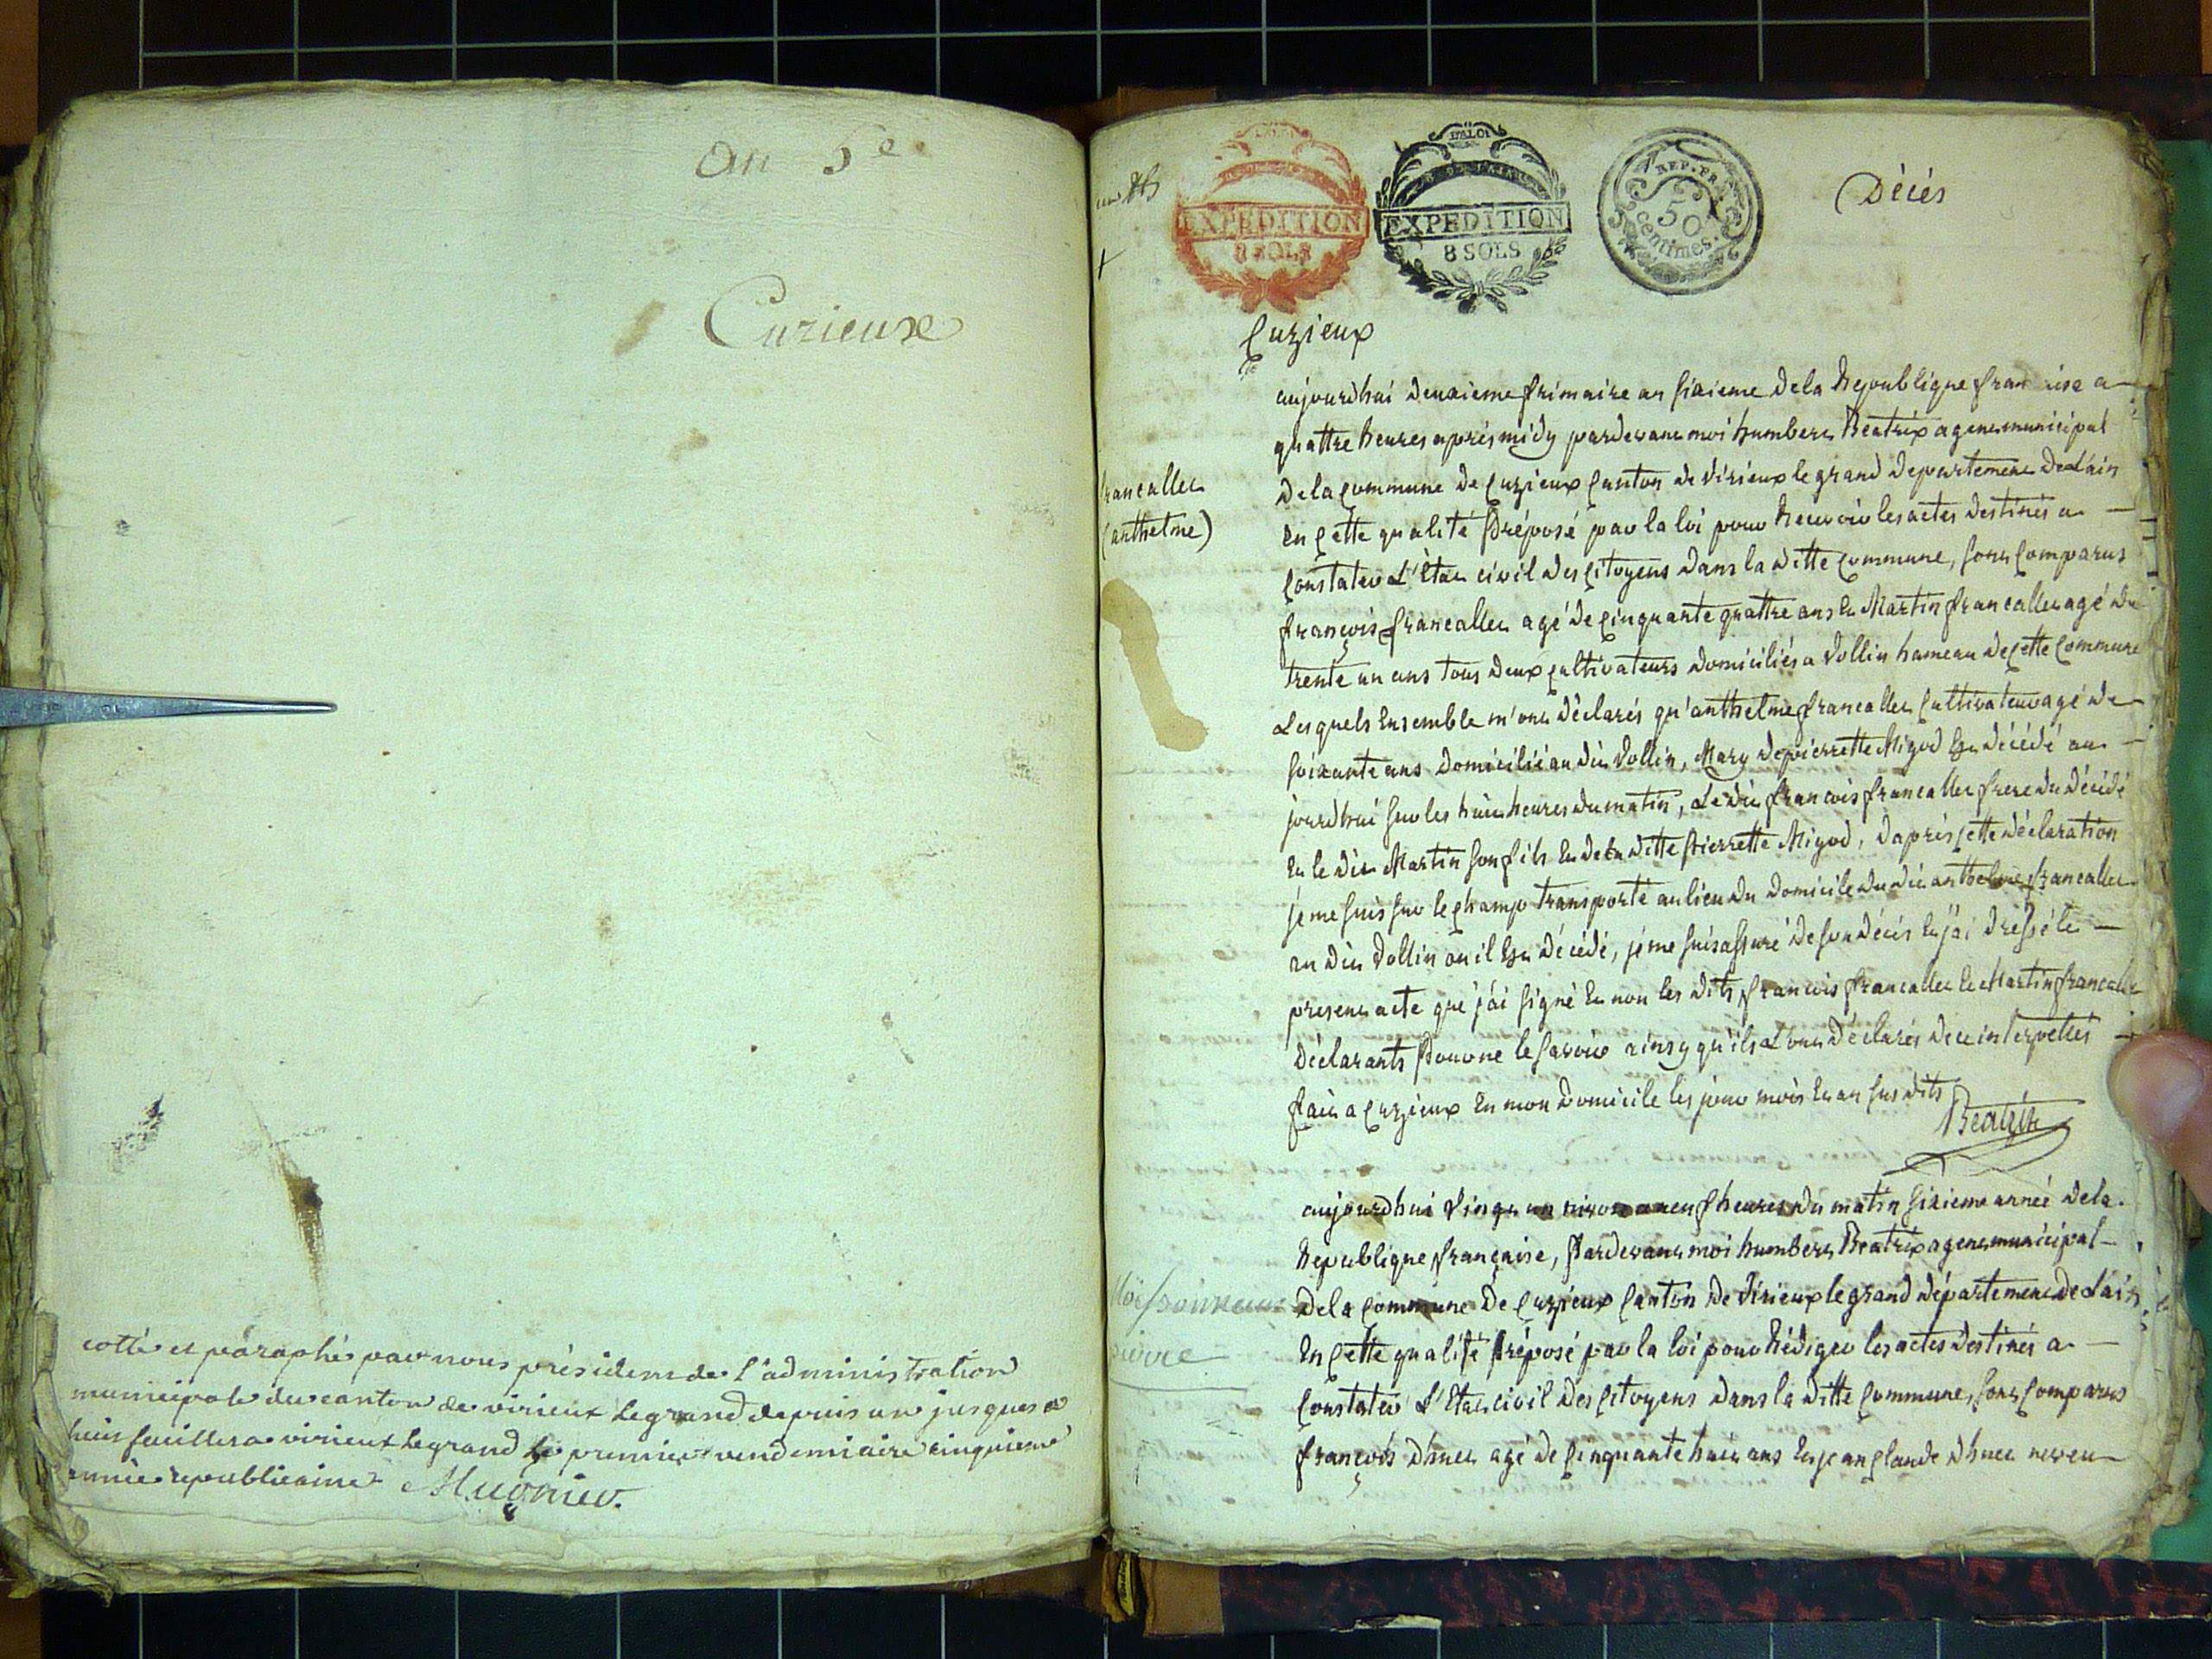 an 5e
Cuzieux
cotté et paraphé par nous président de l'administration
municipale du canton de virieux Legrand depuis un jusques a
huit feuillets a virieux Legrand le premier vendemiaire cinquieme
année republicaine Mugnier.
EXPEDITION
8 SOLS
LA LOI
EXPEDITION
8 SOLS
REP. FRA
50
Centimes.
Décès
Cuzieux
francallet
(anthelme)
aujourdhui deuxieme frimaire an sixieme dela Republique francaise a
quattre heures après midy pardevant moi humbert Béatrix agent municipal
dela Commune de Cuzieux Canton de Virieux le grand departement de L'ain
en Cette qualité préposé par la loi pour Recevoir les actes destinés a
Constater L'état civil des Citoyens dans la ditte Commune, sont Comparus
françois francallet agé de Cinquante quattre ans et Martin francallet agé de
trente un ans tous deux Cultivateurs domiciliés a Vollin hameau de Cette Commune
Lesquels Ensemble m'ont déclarés qu'anthelme francallet Cultivateur agé de
soixante ans domicilié au dit Vollin, Mary de pierrette Migod Est décédé au
jourdhui sur les huit heures du matin, Le dit francois francallet frere du décédé
et le dit Martin son fils et de la ditte Pierrette Migod, daprès Cette déclaration
je me suis sur le Champ transporté au lieu du domicile du dit anthelme francallet
au dit Vollin ou il Est décédé, je me suis assuré de son décès et j'ai dressé le
present acte que j'ai signé et non les dits francois francallet et Martin francallet
déclarants Pour ne le savoir ainsy qu'ils L'ont déclarés de ce interpellés
fait a Cuzieux en mon domicile les jour mois et an sus dits
Beatrix
Moissonnier
pierre
aujourdhui Vingt un nivose a neuf heures du matin sixieme année dela
Republique française, Pardevant moi humbert Beatrix agent municipal
Dela Commune de Cuzieux Canton de Virieux le grand département de L'ain
En Cette qualité préposé par la loi pour Rédiger les actes destinés a
Constater L'Etat civil des Citoyens dans la ditte Commune, sont Comparus
françois dhuet agé de Cinquante huit ans et jean Claude dhuet neveu